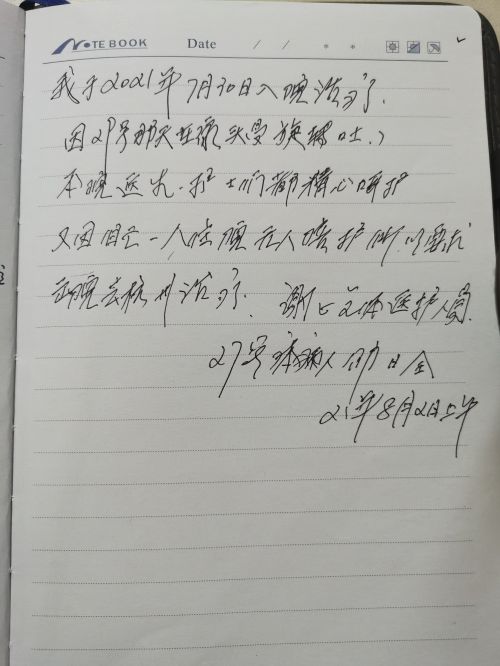 NOTEBOOK Date / / * *
我于2021年7月30日入院治疗.
因 号那天 头晕 呕吐.
本院医生.护士们都精心呵护
又因自己一人住院无人陪护所以要求
出院去杭州治疗. 谢谢全体医护人员.
27号床病人 日全
21年8月2日上午